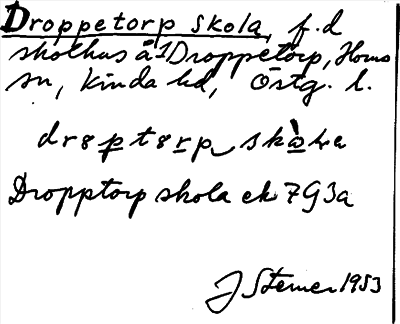 Droppetorp skola, f.d
skolhus å 1 Droppetorp, Horns
sn, Kinda hd, Östg. l.
Dropptorp skola ek 7G3a
J Sterner 1953